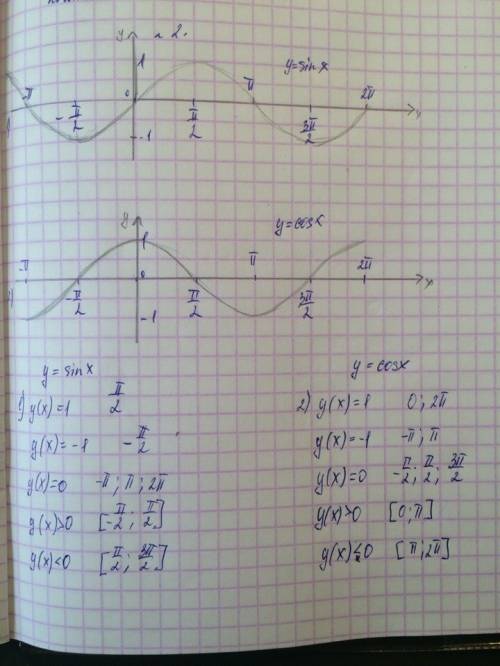 № 2.
y
1
y=sinx
π
0
π
2π
x
-π/2
π/2
3π/2
-1
y
y=cosx
1
π
0
π
2π
x
-π/2
π/2
3π/2
-1
y=sinx
1) y(x)=1 π/2
y(x)=-1 -π/2
y(x)=0 -π; π; 2π
y(x)>0 [-π/2; π/2]
y(x)<0 [π/2; 3π/2]
y=cosx
2) y(x)=1 0; 2π
y(x)=-1 -π; π
y(x)=0 -π/2; π/2; 3π/2
y(x)>0 [0; π]
y(x)<0 [π; 2π]